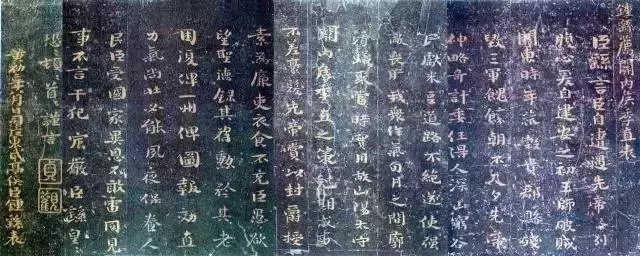 薦關內侯季直表
臣繇言臣自遭遇先帝忝列
腹心爰自建安之初王師破賊
關東時年荒穀貴郡縣殘
毀三軍餽饟朝不及夕先帝
神略奇計委任得人深山窮谷
民獻米豆道路不絕遂使強
敵喪膽我眾作氣旬月之間廓
清蟻聚當時實用故山陽太守
關內侯季直之策剋期成事
不差豪髮先帝賞以封爵授
素為廉吏衣食不充臣愚欲
望聖德錄其舊勳矜其老
困復俾一州俾圖報効直
力氣尚壯必能夙夜保養人
民臣受國家異恩不敢雷同見
事不言干犯宸嚴臣繇皇
恐頓首謹言
貞觀
黃初二年八月日司徒東武亭侯臣鍾繇表